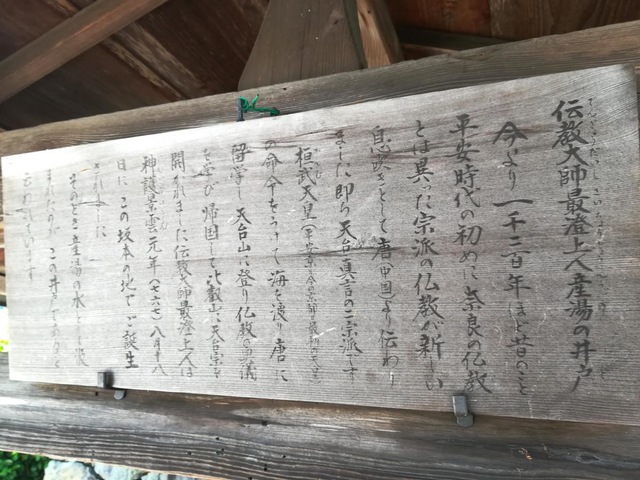 伝教大師最澄上人産湯の井戸
今より一千二百年ほど昔のこと
平安時代の初めに奈良の仏教
とは異った宗派の仏教が新しい
息吹きとして唐(中国)より伝わり
ました 即ち天台真言の二宗派です
桓武天皇(平安京 今の京都 最初の天皇)
の命令をうけて海を渡り唐に
留学し天台山に登り仏教の奥儀
を学び帰国して比叡山に天台宗を
開かれました伝教大師最澄上人は
神護景雲元年(七六七)八月十八
日にこの坂本の地でご誕生
されました
そのとき産湯の水として
まれたのが この井戸であると
云われています